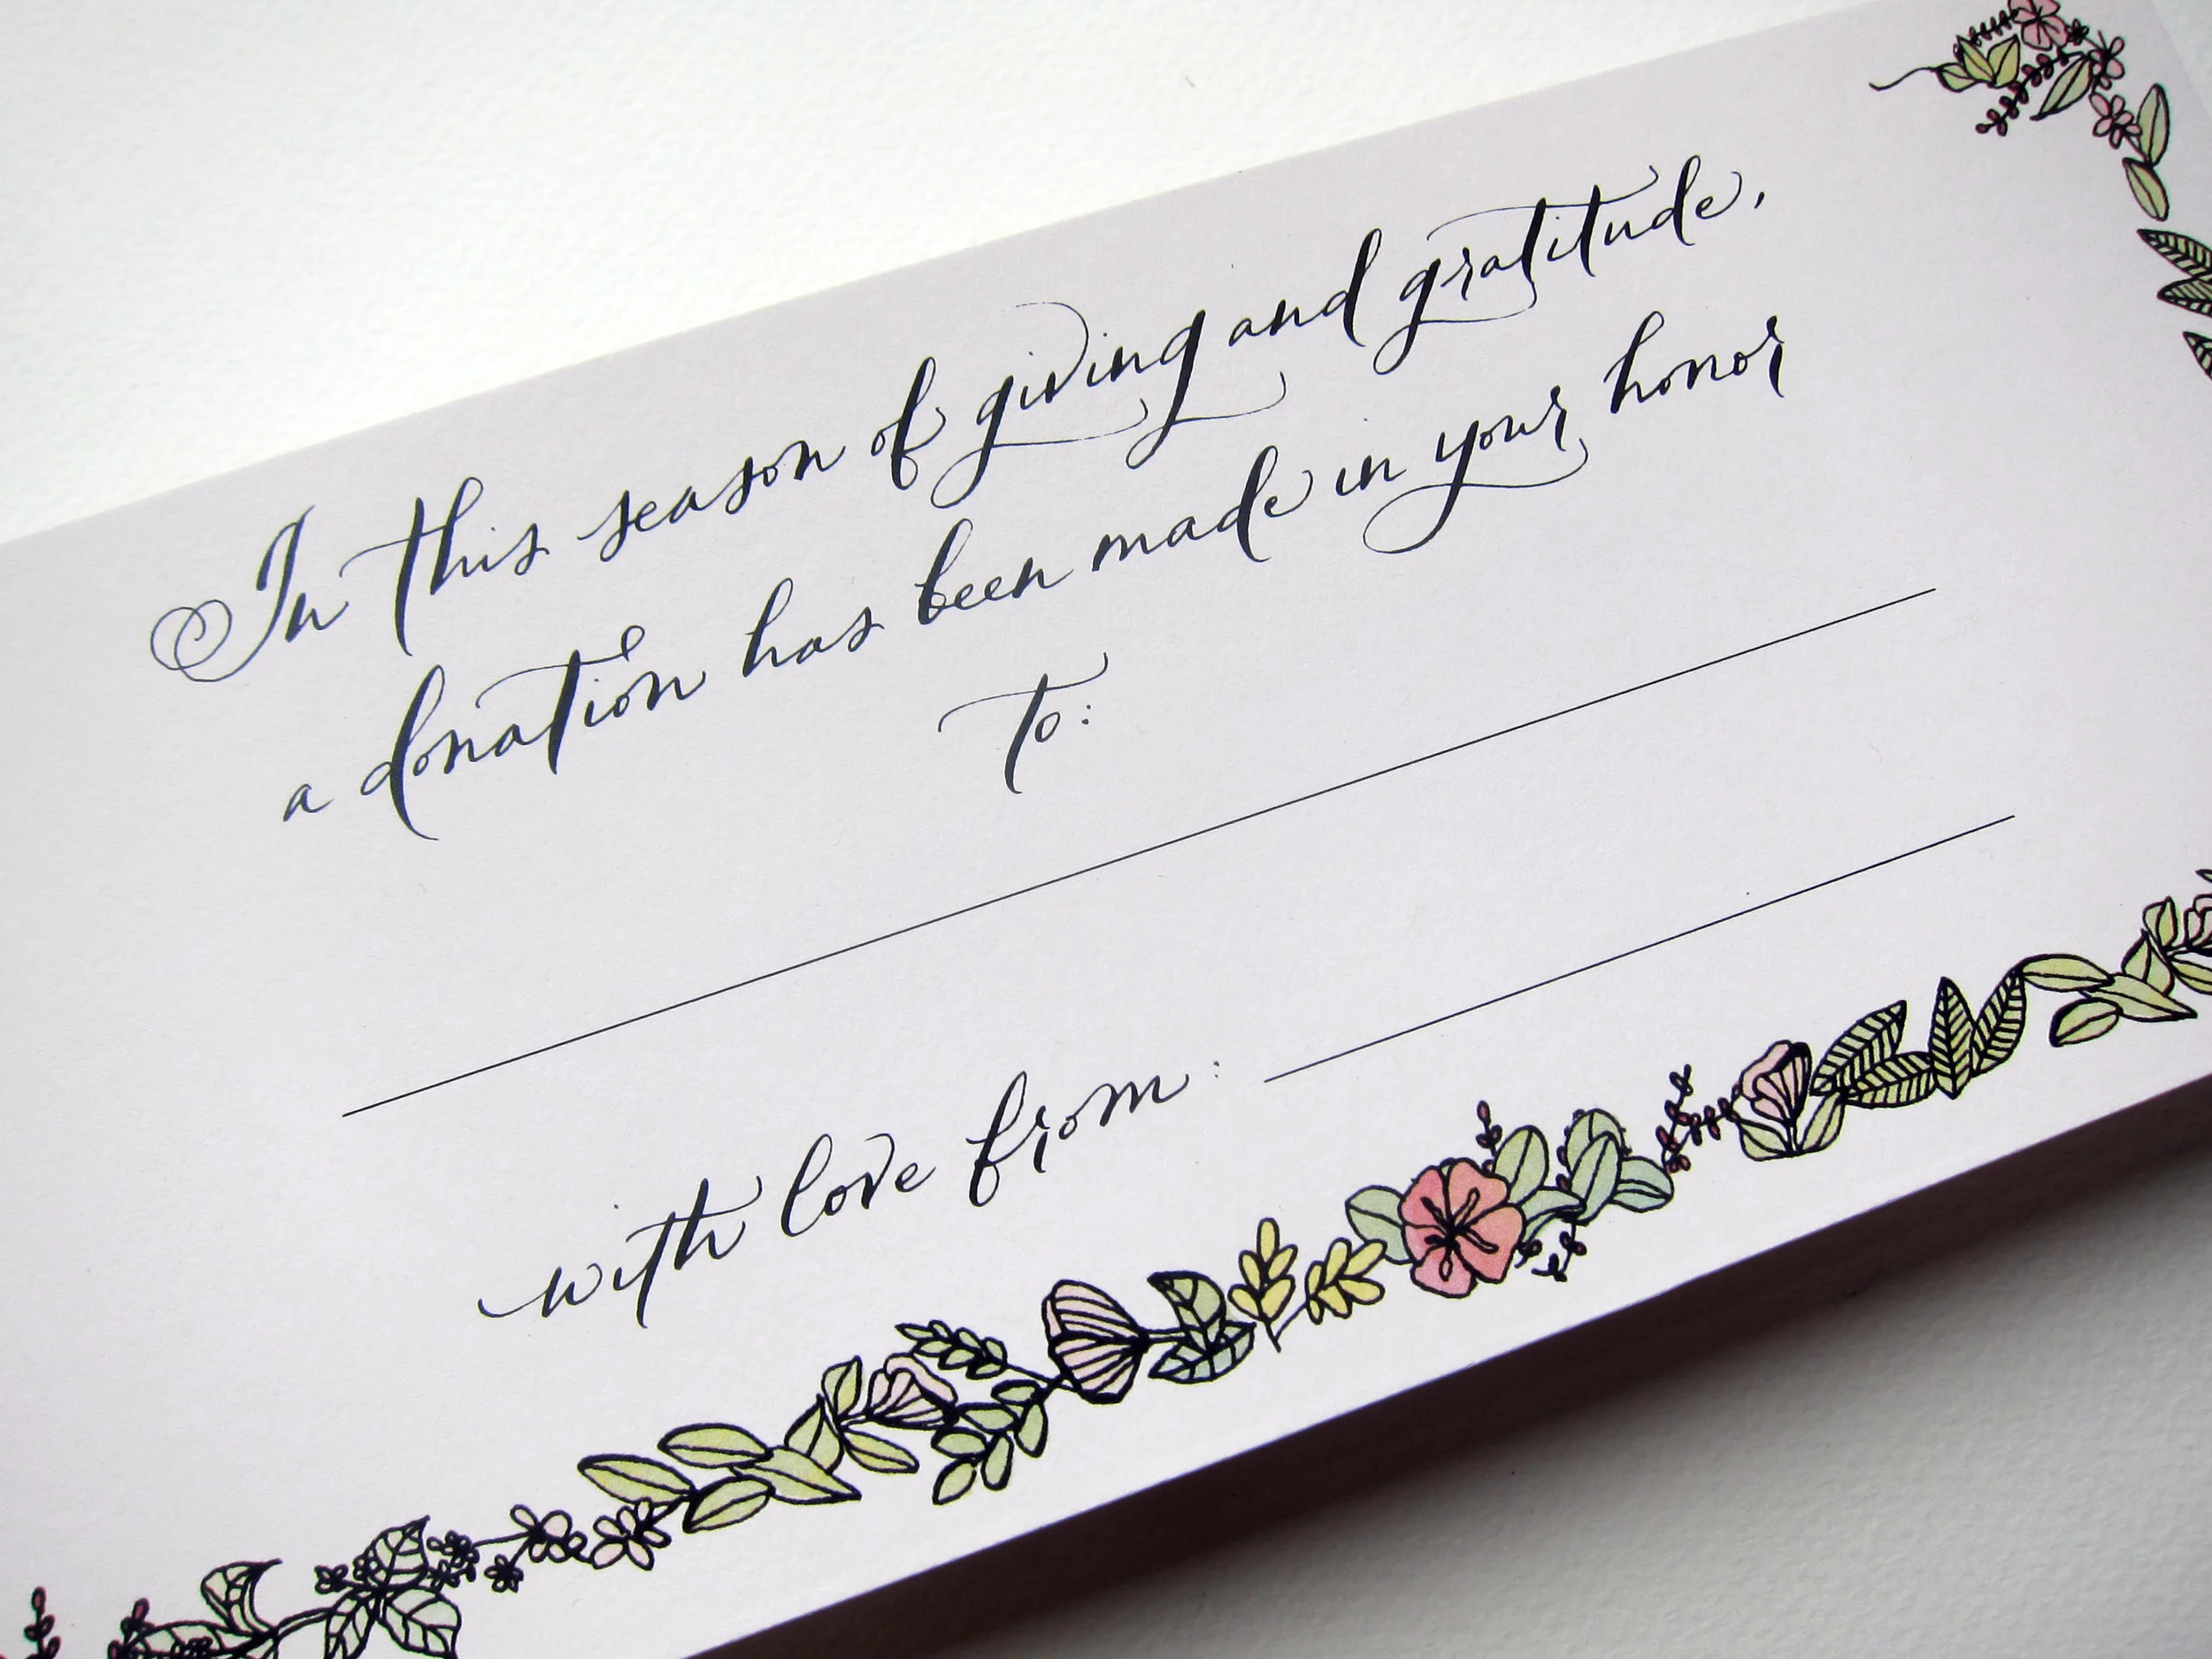 In this season of giving and gratitude,
a donation has been made in your honor
to:
with love from: